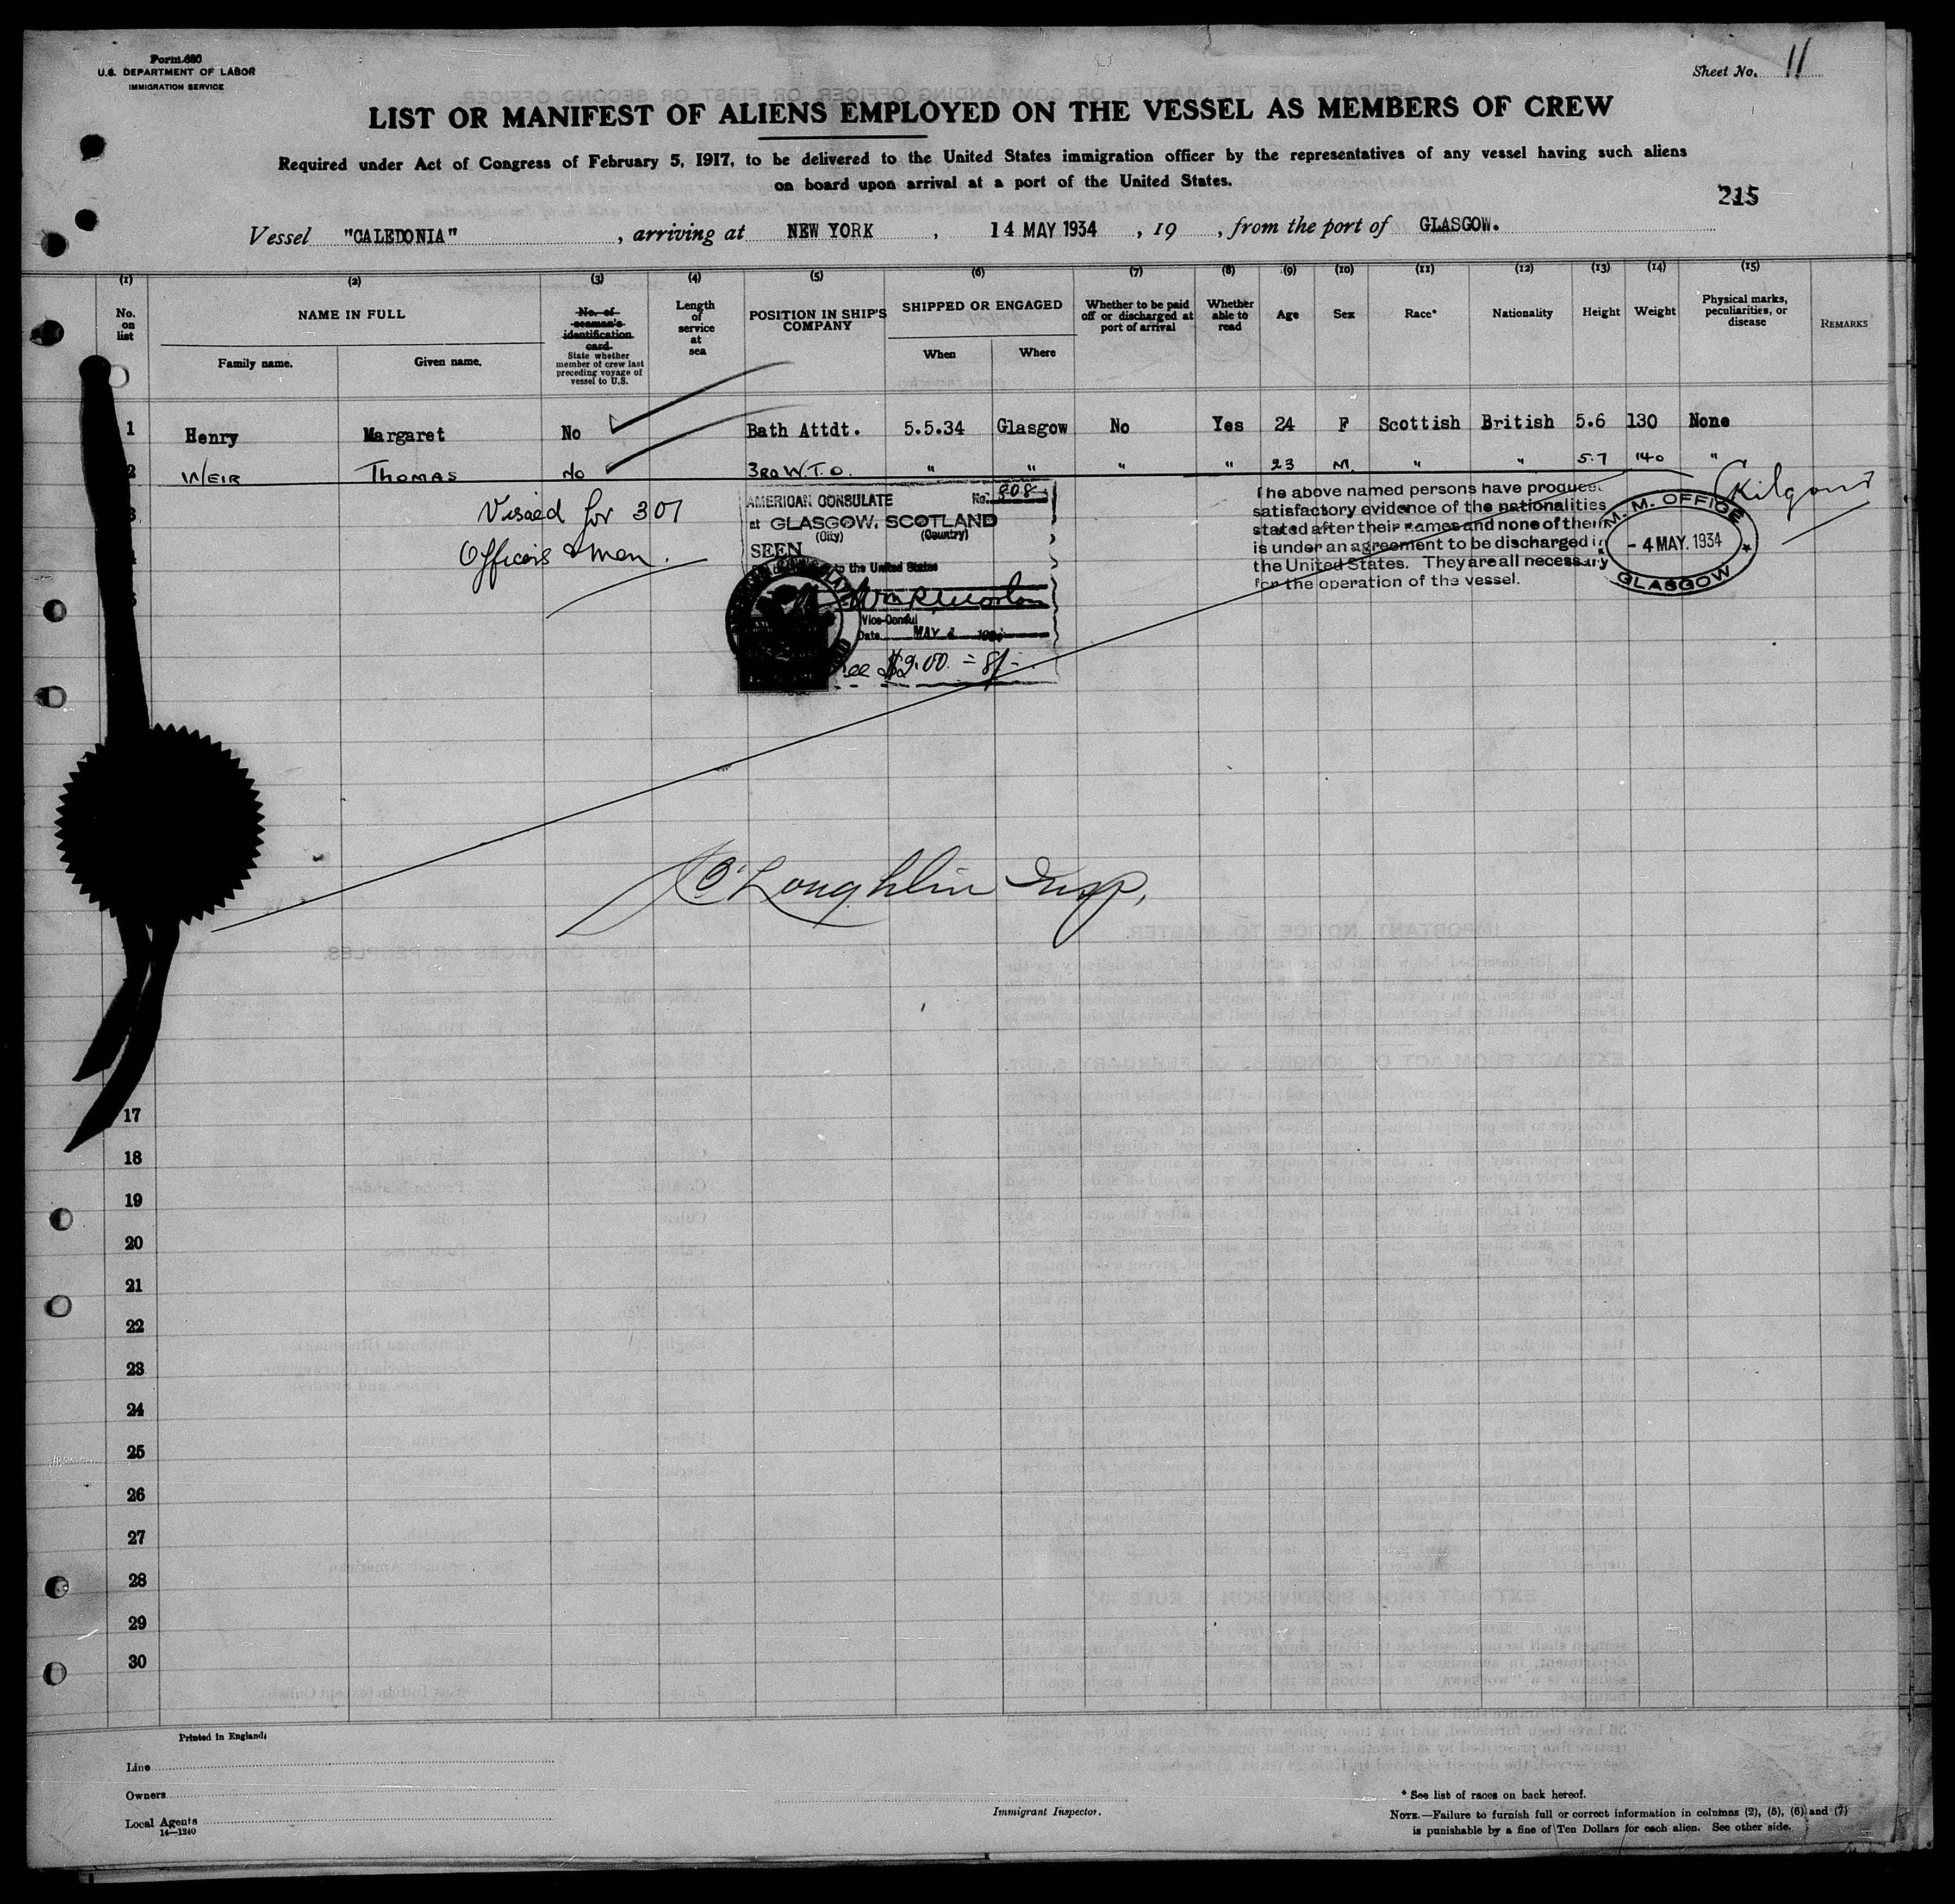 Form 680
U.S. DEPARTMENT OF LABOR
IMMIGRATION SERVICE
Sheet No. 11
LIST OR MANIFEST OF ALIENS EMPLOYED ON THE VESSEL AS MEMBERS OF CREW
Required under Act of Congress of February 5, 1917, to be delivered to the United States immigration officer by the representatives of any vessel having such aliens
on board upon arrival at a port of the United States.
215
Vessel "CALEDONIA", arriving at NEW YORK, 14 MAY 1934, 19 , from the port of GLASGOW.
(1) (2) (3) (4) (5) (6) (7) (8) (9) (10) (11) (12) (13) (14) (15)
No. on list
NAME IN FULL
Family name. Given name.
No. of seaman's identification card
State whether member of crew last preceding voyage of vessel to U.S.
Length of service at sea
POSITION IN SHIP'S COMPANY
SHIPPED OR ENGAGED
When Where
Whether to be paid off or discharged at port of arrival
Whether able to read
Age
Sex
Race*
Nationality
Height
Weight
Physical marks, peculiarities, or disease
REMARKS
1 Henry Margaret No Bath Attdt. 5.5.34 Glasgow No Yes 24 F Scottish British 5.6 130 None
2 WEIR THOMAS No 3RD W.T.O. " " " " 23 M. " " 5.7 140 "
3
Visaed for 307
Officers & men.
AMERICAN CONSULATE No. 808
at GLASGOW, SCOTLAND
(City) (Country)
SEEN
to the United States
Vice-Consul
Date MAY
$2.00 = 8/-
The above named persons have produced
satisfactory evidence of the nationalities
stated after their names and none of them
is under an agreement to be discharged in
the United States. They are all necessary
for the operation of the vessel.
M. M. OFFICE
- 4 MAY. 1934
GLASGOW
Kilgour
O'Loughlin Insp,
17
18
19
20
21
22
23
24
25
26
27
28
29
30
Printed in England:
Line
Owners
Local Agents
14—1240
Immigrant Inspector.
* See list of races on back hereof.
NOTE.—Failure to furnish full or correct information in columns (2), (5), (6) and (7)
is punishable by a fine of Ten Dollars for each alien. See other side.